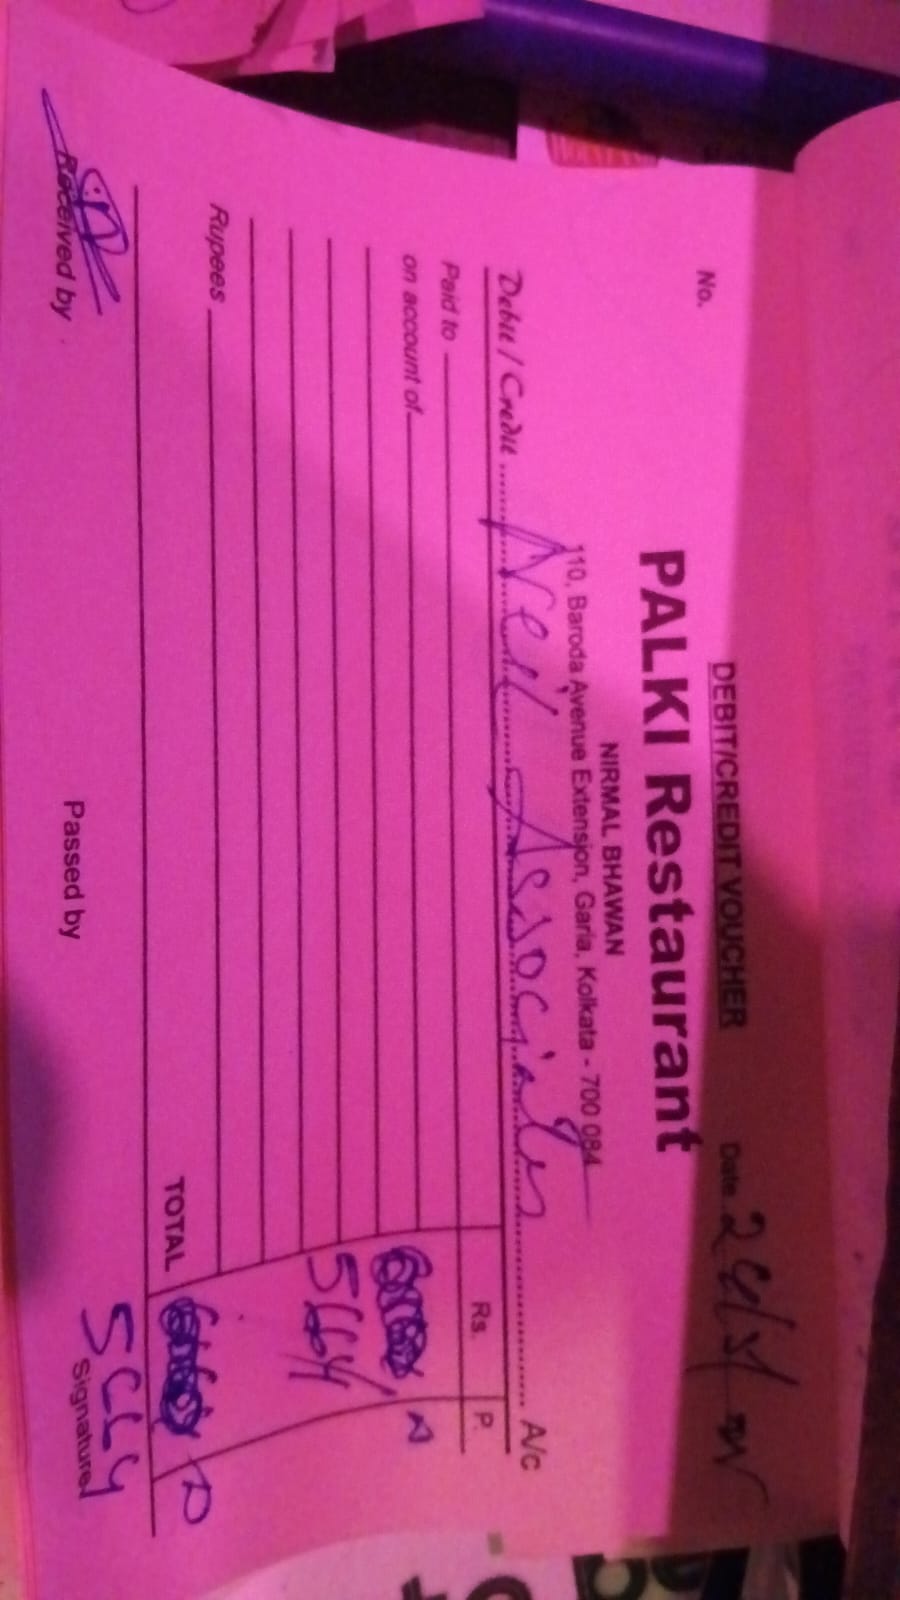 DEBIT/CREDIT VOUCHER
No. Date
PALKI Restaurant
NIRMAL BHAWAN
110, Baroda Avenue Extension, Garia, Kolkata - 700 084
Debit / Credit Neil Associates A/c
Paid to Rs. P.
on account of
5664/
Rupees
TOTAL
5664
Received by Passed by Signature